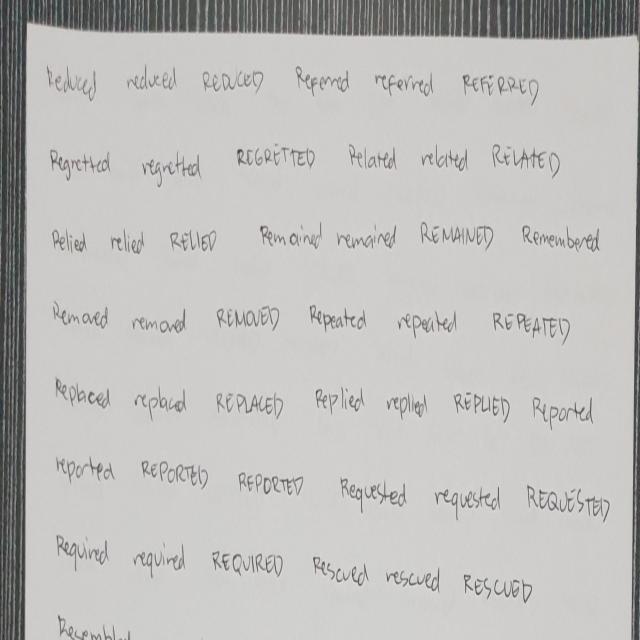 Reduced reduced REDUCED Referred referred REFERRED
Regretted regretted REGRETTED Related related RELATED
Relied relied RELIED Remained remained REMAINED Remembered
Removed removed REMOVED Repeated repeated REPEATED
Replaced replaced REPLACED Replied replied REPLIED Reported
reported REPORTED REPORTED Requested requested REQUESTED
Required required REQUIRED Rescued rescued RESCUED